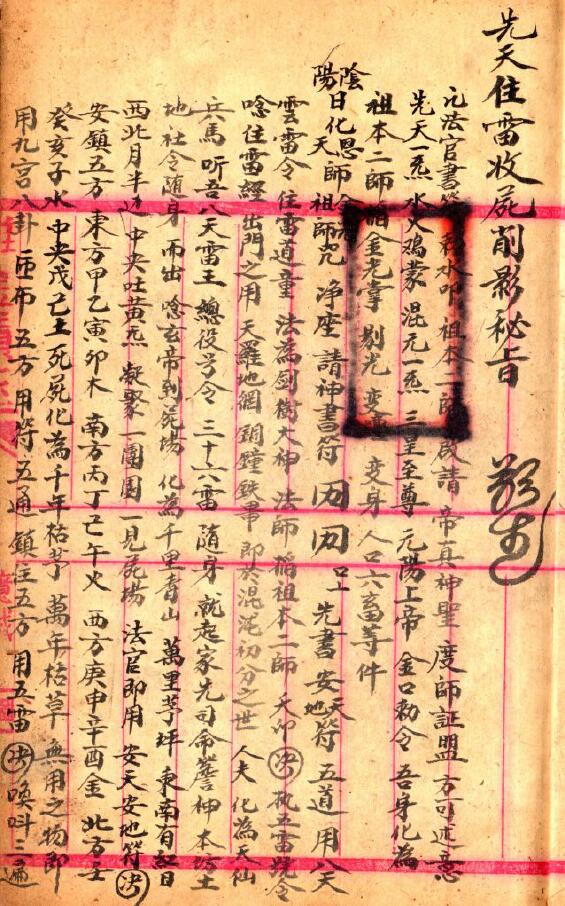 先天住雷收屍削影秘旨
凡法官書符 水叩 祖本二師 啟請 帝真神聖 度師証盟 方可述意
先天一炁 水火鴻蒙 混元一炁 三皇至尊 元陽上帝 金口勅令 吾身化為
祖本二師 金老掌 剔光 變身 人口六畜等件
陰陽日化天恩師 祖師咒 净座 請神書符 先書安天地符 五道 用八天
雲雷令 住雷道童 法為劍樹大神 法師稱祖本二師 天印 决 五雷號令
唸住雷經出門之用 天羅地網 銅鐘鉄 即於混沌初分之世 人夫化為天仙
兵馬 听吾八天雷王 總役号令 三十六雷隨身 就起家先司命 神本坊土
地社令隨身 而出 唸玄帝到死場 化為千里青山 萬里茅坪 東南有紅日
西北月半边 中央吐黃炁 凝聚一團圓 一見屍場 法官即用 安天安地符 决
安鎮五方 東方甲乙寅卯木 南方丙丁巳午火 西方庚申辛酉金 北方壬
癸亥子水 中央戊己土 死屍化為千年枯茅 萬年枯草 無用之物 即
用九宫八卦 匝布五方 用符五通 鎮住五方 用五雷 决 喚呌三遍